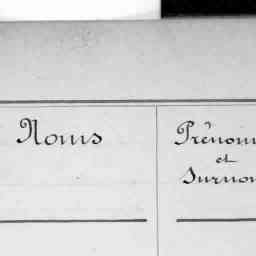 Noms
Prénom
et
Surnom